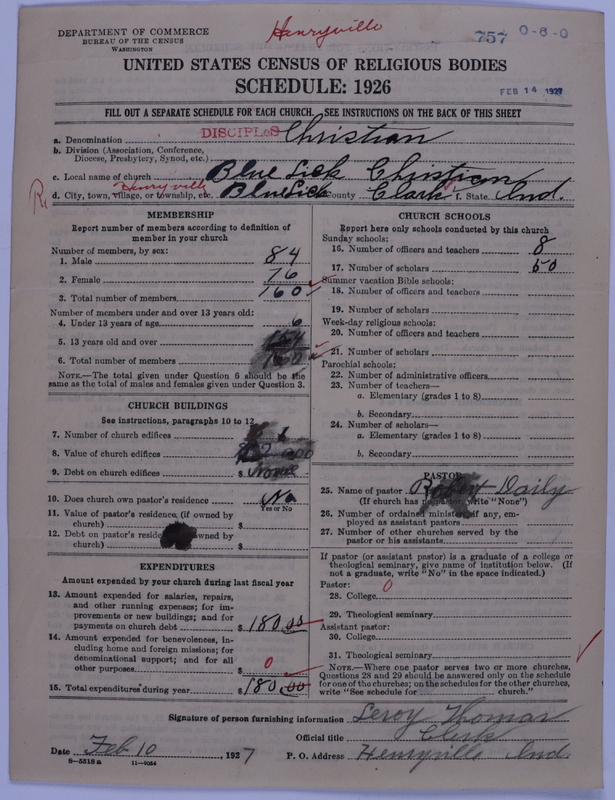 DEPARTMENT OF COMMERCE
BUREAU OF THE CENSUS
WASHINGTON
Henryville
757 0-6-0
UNITED STATES CENSUS OF RELIGIOUS BODIES
SCHEDULE: 1926
FEB 14 1927
FILL OUT A SEPARATE SCHEDULE FOR EACH CHURCH. SEE INSTRUCTIONS ON THE BACK OF THIS SHEET
a. Denomination DISCIPLES Christian
b. Division (Association, Conference,
Diocese, Presbytery, Synod, etc.)
c. Local name of church Blue Lick Christian
Henryville
d. City, town, village, or township, etc. Blue Lick e. County Clark f. State Ind.
MEMBERSHIP
Report number of members according to definition of
member in your church
Number of members, by sex:
1. Male 84
2. Female 76
3. Total number of members 160
Number of members under and over 13 years old:
4. Under 13 years of age 6
5. 13 years old and over 154
6. Total number of members 160
NOTE.—The total given under Question 6 should be the
same as the total of males and females given under Question 3.
CHURCH BUILDINGS
See instructions, paragraphs 10 to 12
7. Number of church edifices 1
8. Value of church edifices $
9. Debt on church edifices $ None
10. Does church own pastor's residence No
Yes or No
11. Value of pastor's residence, (if owned by
church) $
12. Debt on pastor's owned by
church) $
EXPENDITURES
Amount expended by your church during last fiscal year
13. Amount expended for salaries, repairs,
and other running expenses; for im-
provements or new buildings; and for
payments on church debt $ 180.00
14. Amount expended for benevolences, in-
cluding home and foreign missions; for
denominational support; and for all
other purposes $ 0
15. Total expenditures during year $ 180.00
CHURCH SCHOOLS
Report here only schools conducted by this church
Sunday schools:
16. Number of officers and teachers 8
17. Number of scholars 50
Summer vacation Bible schools:
18. Number of officers and teachers
19. Number of scholars
Week-day religious schools:
20. Number of officers and teachers
21. Number of scholars
Parochial schools:
22. Number of administrative officers
23. Number of teachers—
a. Elementary (grades 1 to 8)
b. Secondary
24. Number of scholars—
a. Elementary (grades 1 to 8)
b. Secondary
PASTOR
25. Name of pastor Robert Daily
(If church has no pastor, write "None")
26. Number of ordained ministers, if any, em-
ployed as assistant pastors
27. Number of other churches served by the
pastor or his assistants
If pastor (or assistant pastor) is a graduate of a college or
theological seminary, give name of institution below. (If
not a graduate, write "No" in the space indicated.)
Pastor: 0
28. College
29. Theological seminary
Assistant pastor:
30. College
31. Theological seminary
NOTE.—Where one pastor serves two or more churches,
Questions 28 and 29 should be answered only on the schedule
for one of the churches; on the schedules for the other churches,
write "See schedule for church."
Signature of person furnishing information Leroy Thomas
Official title Clerk
Date Feb 10, 1927 P. O. Address Henryville Ind.
8—5518a 11—9054